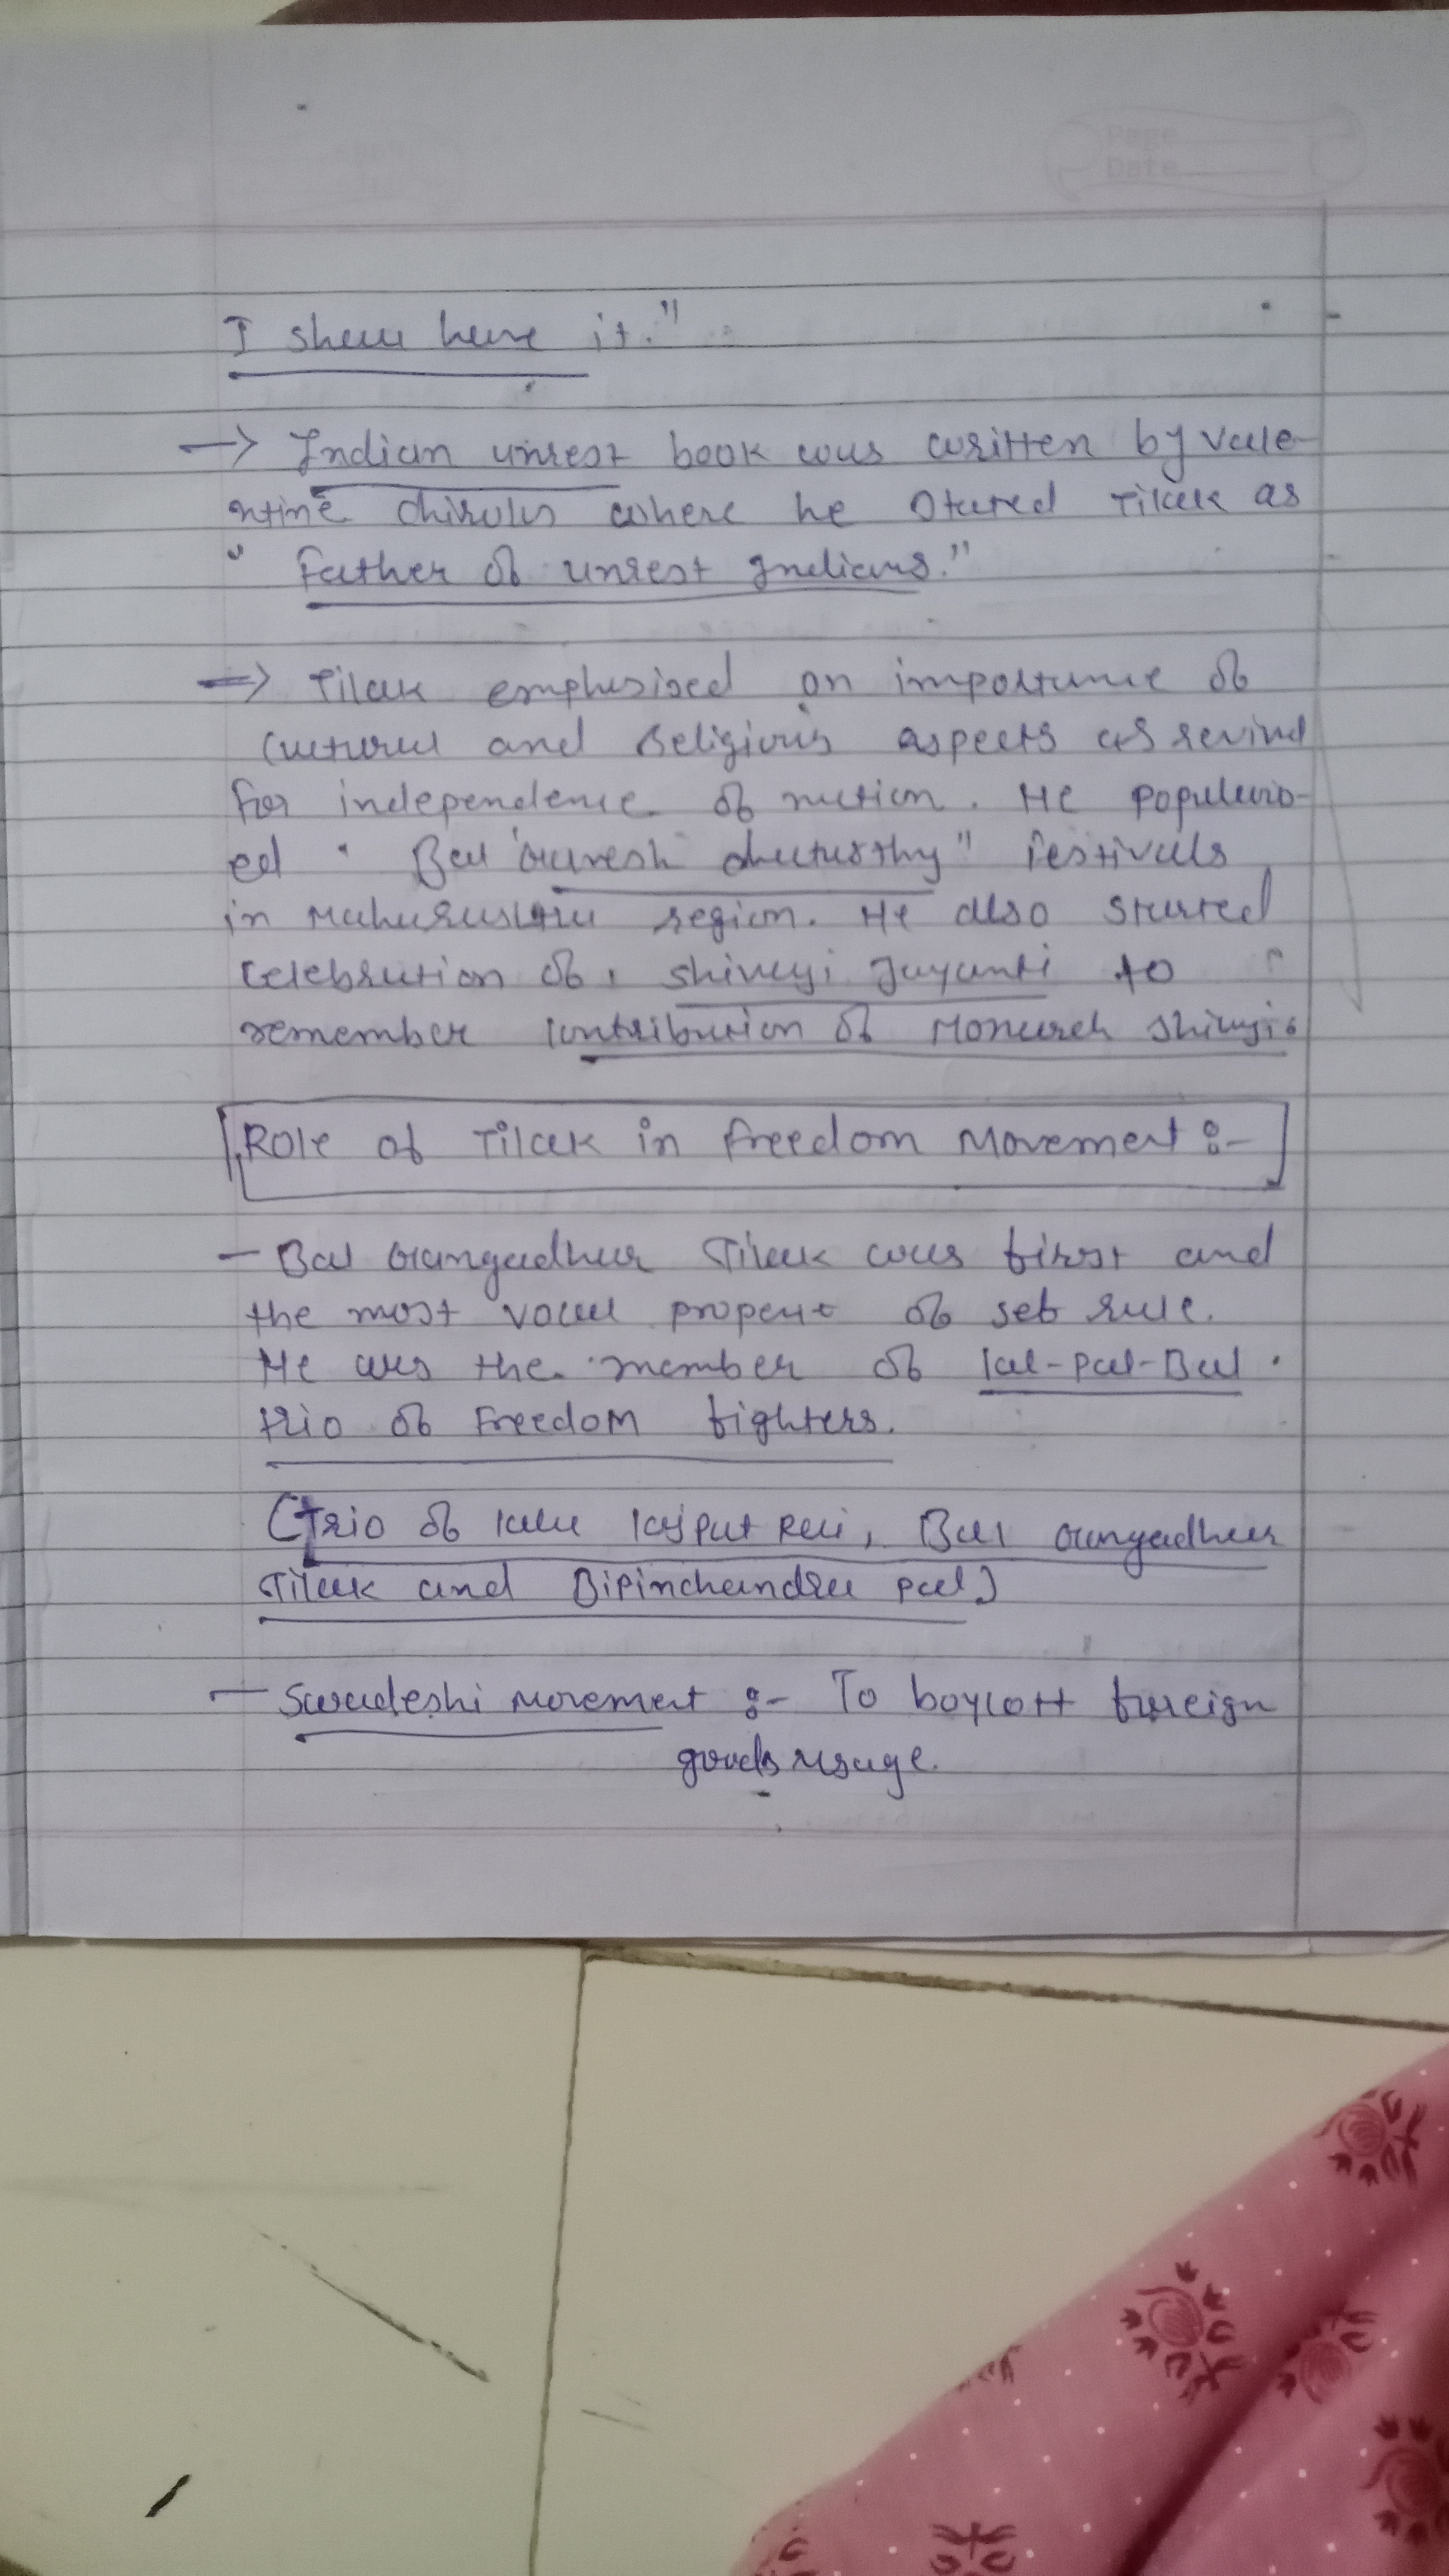 Page
Date
I shall have it."
→ Indian unrest book was written by Vale-
ntine chirols where he stared Tilak as
" Father of unrest Indians."
⇒ Tilak emphasised on importance of
Cultural and Religious aspects as
for independence of nation. He populariz-
ed " Bal Ganesh chaturthy" festivals
in Maharashtra region. He also started
celebration of, shivaji Jayanti to
remember contribution of Monarch Shivaji.
Role of Tilak in freedom Movement :-
- Bal Gangadhar Tilak was first and
the most vocal of self rule.
He was the member of lal-pal-Bal
trio of Freedom fighters.
(Trio of lala lajput Rai, Bal Gangadhar
Tilak and Bipinchandra pal)
- Swadeshi Movement :- To boycott foreign
goods usage.